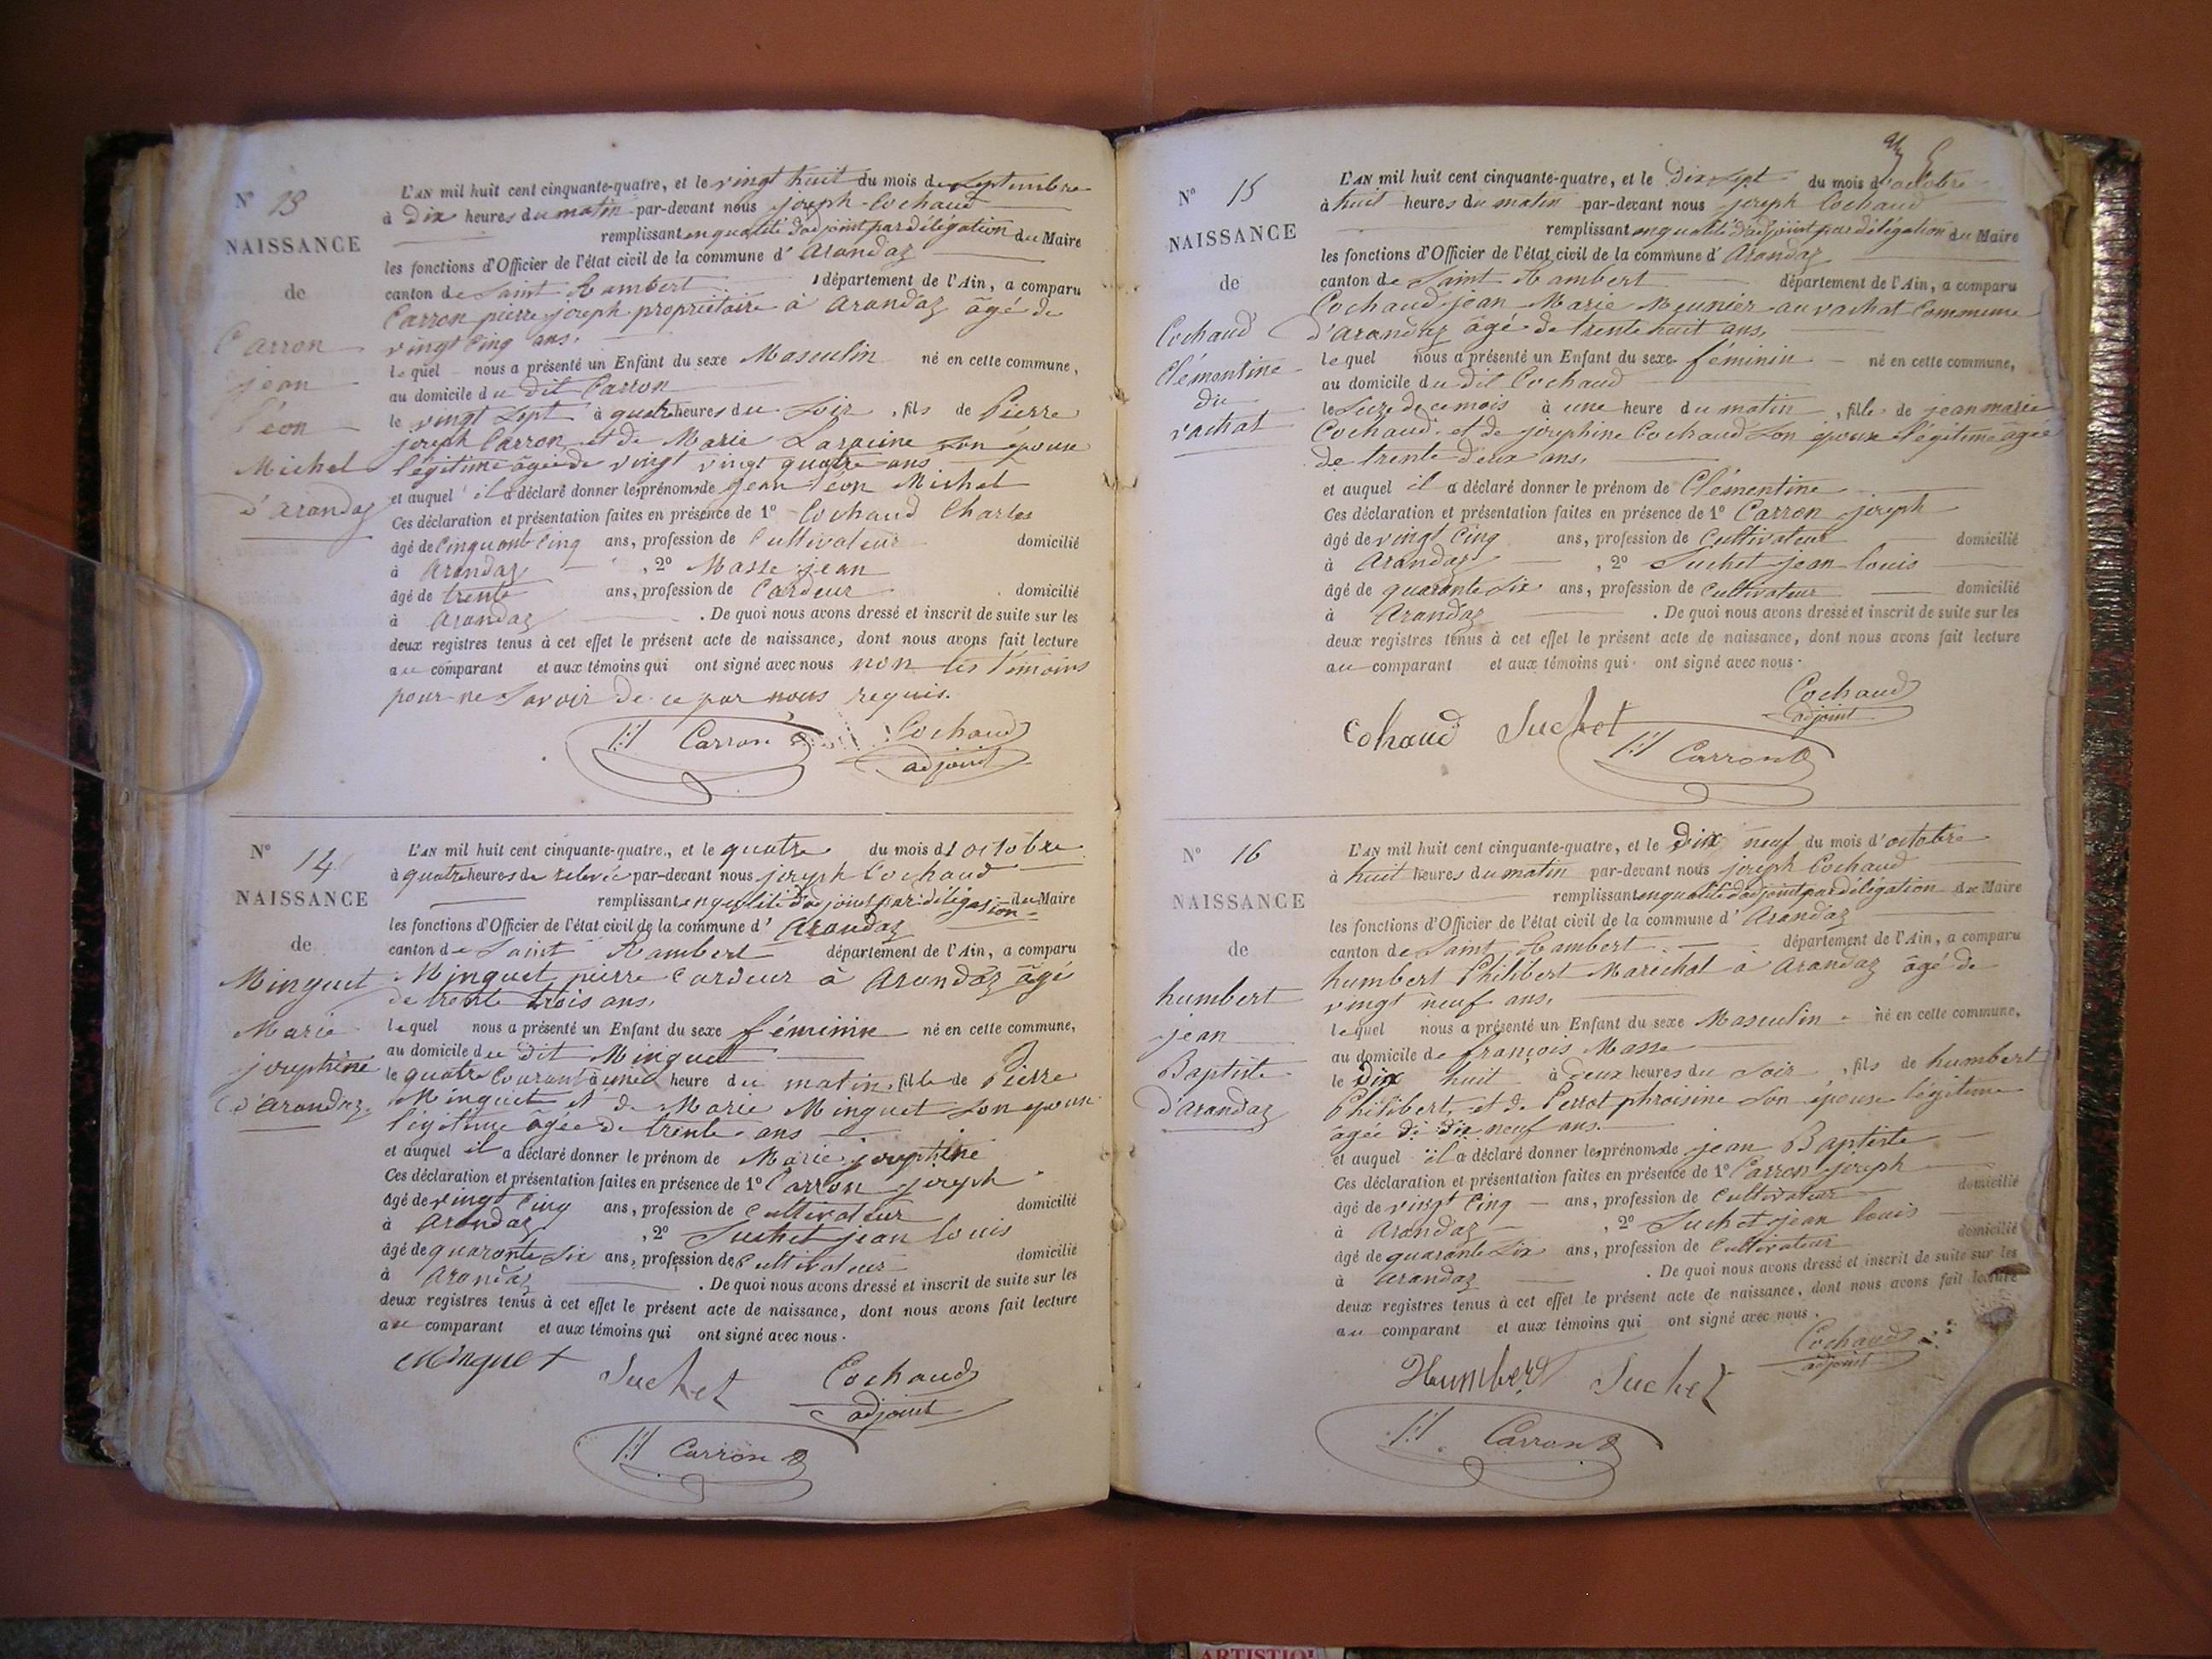 N° 13
NAISSANCE
de
Carron
jean
léon
Michel
d'arandaz
L'AN mil huit cent cinquante-quatre, et le vingt huit du mois de Septembre
à Dix heures du matin par-devant nous joseph Cochaud
remplissant en qualité d'adjoint par délégation du Maire
les fonctions d'Officier de l'état civil de la commune d'Arandaz
canton de Saint Rambert département de l'Ain, a comparu
Carron pierre joseph propriétaire à Arandaz âgé de
vingt Cinq ans.
lequel nous a présenté un Enfant du sexe Masculin né en cette commune,
au domicile du dit Carron
le vingt Sept à quatre heures du Soir, fils de Pierre
joseph Carron et de Marie Laracine Son épouse
légitime âgée de vingt vingt quatre ans
et auquel il a déclaré donner les prénoms de jean léon Michel
Ces déclaration et présentation faites en présence de 1° Cochaud Charles
âgé de Cinquante Cinq ans, profession de Cultivateur domicilié
à Arandaz, 2° Masse jean
âgé de trente ans, profession de Cardeur domicilié
à Arandaz. De quoi nous avons dressé et inscrit de suite sur les
deux registres tenus à cet effet le présent acte de naissance, dont nous avons fait lecture
au comparant et aux témoins qui ont signé avec nous non les témoins
pour ne Savoir de ce par nous requis.
Carron Cochaud
adjoint
N° 14
NAISSANCE
de
Minguet
Marie
josephine
d'arandaz
L'AN mil huit cent cinquante-quatre, et le quatre du mois d'octobre
à quatre heures de relevée par-devant nous joseph Cochaud
remplissant en qualité d'adjoint par délégation du Maire
les fonctions d'Officier de l'état civil de la commune d'Arandaz
canton de Saint Rambert département de l'Ain, a comparu
Minguet pierre Cardeur à Arandaz âgé
de trente trois ans.
lequel nous a présenté un Enfant du sexe féminin né en cette commune,
au domicile du dit Minguet
le quatre Courant à une heure du matin, fille de Pierre
Minguet et de Marie Minguet Son épouse
légitime âgée de trente ans
et auquel il a déclaré donner le prénom de Marie josephine
Ces déclaration et présentation faites en présence de 1° Carron joseph
âgé de vingt Cinq ans, profession de Cultivateur domicilié
à Arandaz, 2° Suchet jean louis
âgé de quarante Six ans, profession de Cultivateur domicilié
à Arandaz. De quoi nous avons dressé et inscrit de suite sur les
deux registres tenus à cet effet le présent acte de naissance, dont nous avons fait lecture
au comparant et aux témoins qui ont signé avec nous.
Minguet Suchet Cochaud
adjoint
Carron
N° 15
NAISSANCE
de
Cochaud
Clémentine
du
vachat
L'AN mil huit cent cinquante-quatre, et le Dix Sept du mois d'octobre
à huit heures du matin par-devant nous joseph Cochaud
remplissant en qualité d'adjoint par délégation du Maire
les fonctions d'Officier de l'état civil de la commune d'Arandaz
canton de Saint Rambert département de l'Ain, a comparu
Cochaud jean Marie Meunier au vachat Commune
d'Arandaz âgé de trente huit ans,
lequel nous a présenté un Enfant du sexe féminin né en cette commune,
au domicile du dit Cochaud
le Seize de ce mois à une heure du matin, fille de jean marie
Cochaud et de josephine Cochaud Son épouse légitime âgée
de trente deux ans.
et auquel il a déclaré donner le prénom de Clémentine
Ces déclaration et présentation faites en présence de 1° Carron joseph
âgé de vingt Cinq ans, profession de Cultivateur domicilié
à Arandaz, 2° Suchet jean louis
âgé de quarante Six ans, profession de Cultivateur domicilié
à Arandaz. De quoi nous avons dressé et inscrit de suite sur les
deux registres tenus à cet effet le présent acte de naissance, dont nous avons fait lecture
au comparant et aux témoins qui ont signé avec nous.
Cohaud Suchet Cochaud
adjoint
Carron
N° 16
NAISSANCE
de
humbert
jean
Baptiste
d'arandaz
L'AN mil huit cent cinquante-quatre, et le Dix neuf du mois d'octobre
à huit heures du matin par-devant nous joseph Cochaud
remplissant en qualité d'adjoint par délégation du Maire
les fonctions d'Officier de l'état civil de la commune d'Arandaz
canton de Saint Rambert département de l'Ain, a comparu
humbert Philibert Maréchal à Arandaz âgé de
vingt neuf ans.
lequel nous a présenté un Enfant du sexe Masculin né en cette commune,
au domicile de françois Masse
le Dix huit à deux heures du Soir, fils de humbert
Philibert, et de Perrot phroisine Son épouse légitime
âgée de dix neuf ans.
et auquel il a déclaré donner les prénoms de jean Baptiste
Ces déclaration et présentation faites en présence de 1° Carron joseph
âgé de vingt Cinq ans, profession de Cultivateur domicilié
à Arandaz, 2° Suchet jean louis
âgé de quarante Six ans, profession de Cultivateur domicilié
à Arandaz. De quoi nous avons dressé et inscrit de suite sur les
deux registres tenus à cet effet le présent acte de naissance, dont nous avons fait lecture
au comparant et aux témoins qui ont signé avec nous.
Humbert Suchet Cochaud
adjoint
Carron